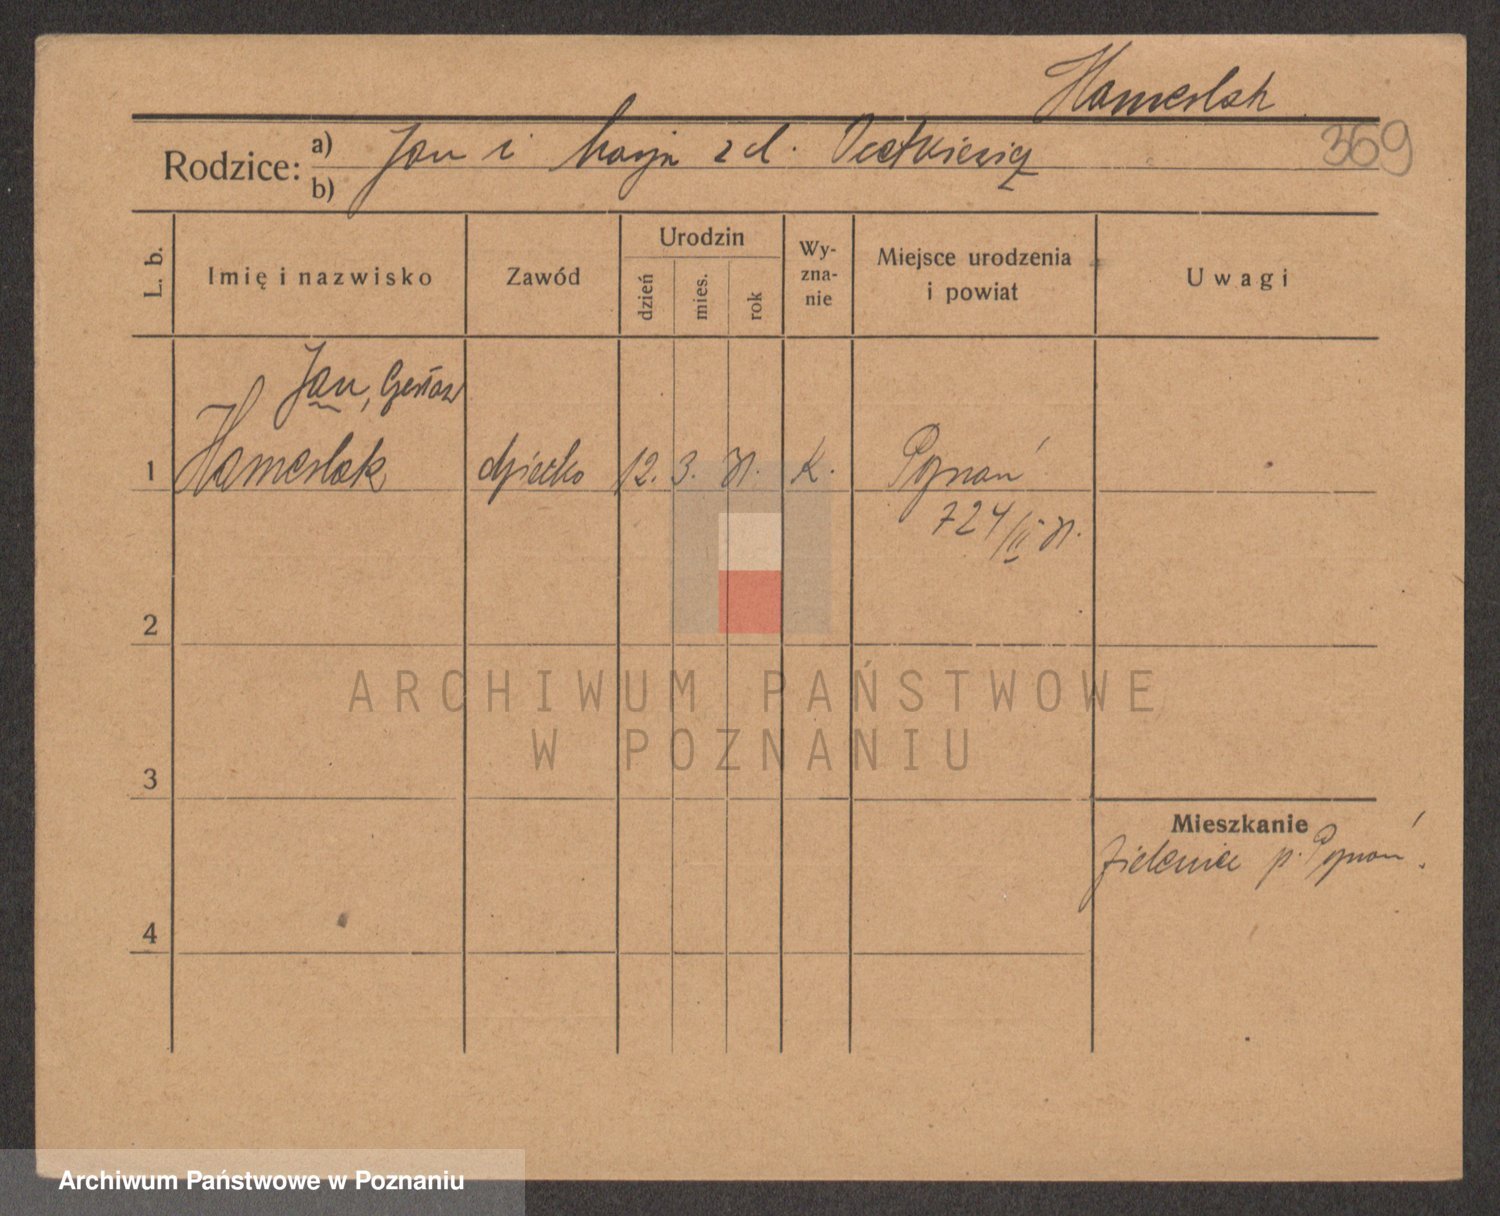 Hamerlak
369
Rodzice: a) Jan i Marja z d.
b)
L. b.
Imię i nazwisko
Zawód
Urodzin
dzień
mies.
rok
Wy-
zna-
nie
Miejsce urodzenia
i powiat
Uwagi
Jan, Czesław
1 Hamerlak dziecko 12. 3. 31. K. Poznań
724/II 31.
2
3
4
Mieszkanie
p. Poznań.
ARCHIWUM PAŃSTWOWE
W POZNANIU
Archiwum Państwowe w Poznaniu